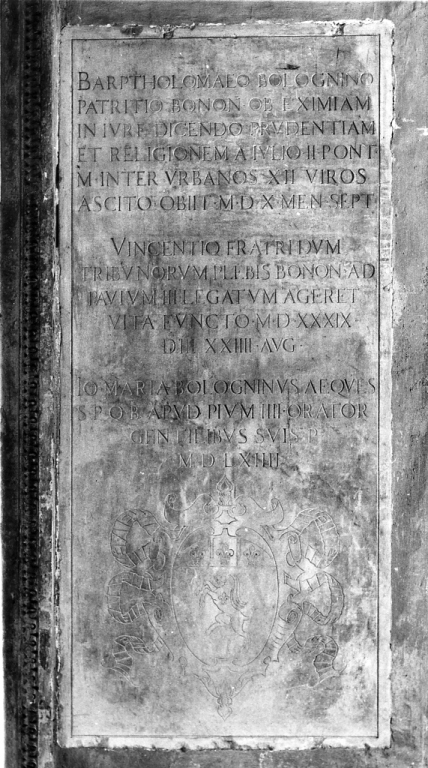 BARPTHOLOMAEO·BOLOGNINO
PATRITIO·BONON·OB·EXIMIAM
IN·IVRE·DICENDO·PRVDENTIAM
ET·RELIGIONEM·A·IVLIO·II·PONT
M·INTER·VRBANOS·XII·VIROS
ASCITO·OBIIT·M·D·X·MEN·SEPT
VINCENTIO·FRATRI·DVM
TRIBVNORVM·PLEBIS·BONON·AD
PAVLVM·III·LEGATVM·AGERET
VITA·FVNCTO·M·D·XXXIX
DIE·XXIIII·AVG·
IO·MARIA·BOLOGNINVS·AEQVES
S·P·Q·B·APVD·PIVM·IIII·ORATOR
GENTILIBVS·SVIS·P·
M·D·LXIIII